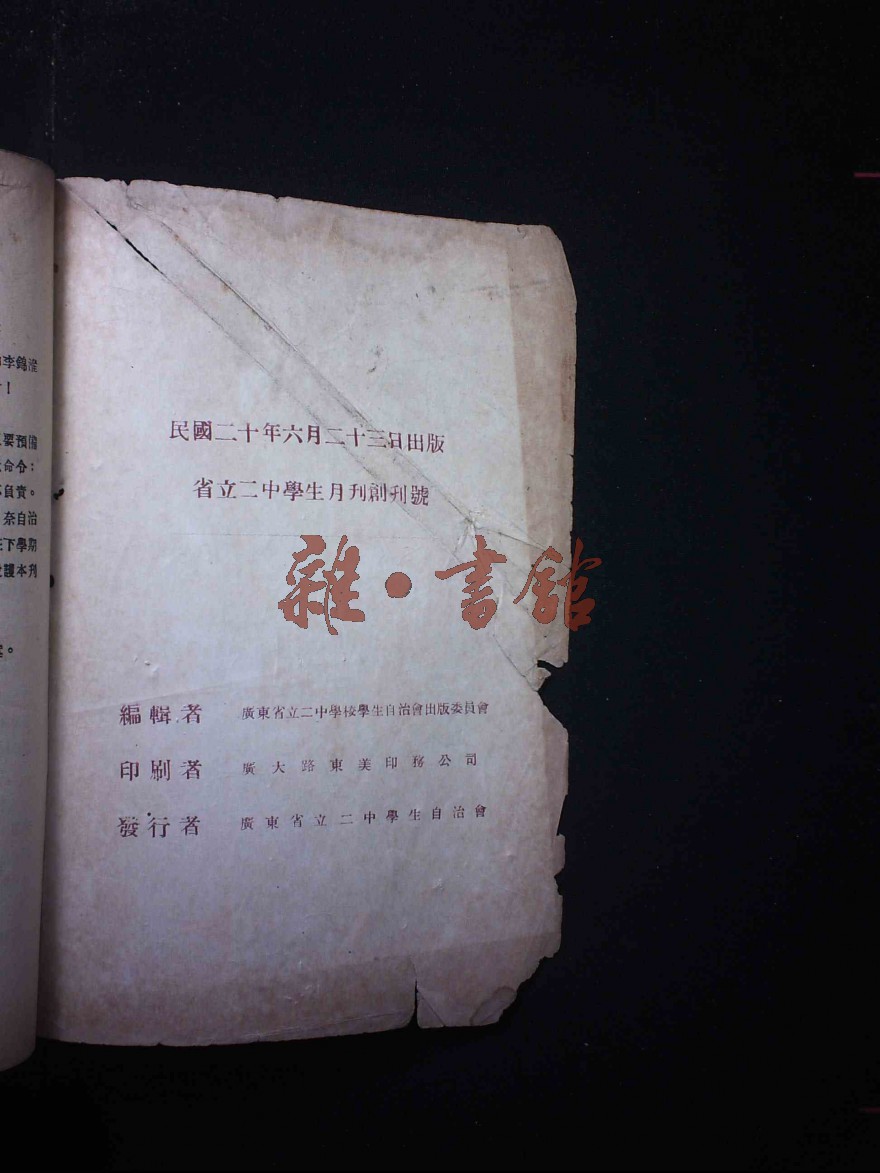 李錦瀅
！
要預備
命令：
負責。
奈自治
下學期
護本刊
。
民國二十年六月二十三日出版
省立二中學生月刊創刊號
雜·書館
編輯者 廣東省立二中學校學生自治會出版委員會
印刷者 廣大路東美印務公司
發行者 廣東省立二中學生自治會